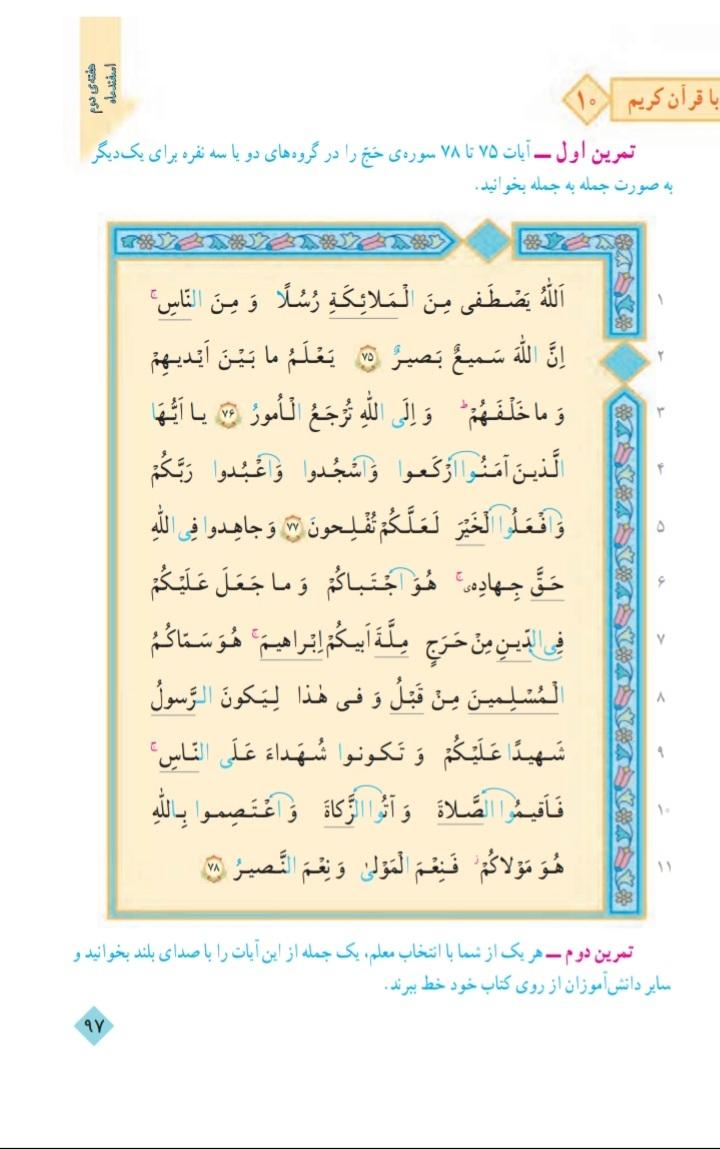 هفته‌ی دوم
اسفندماه
با قرآن کریم
۱۰
تمرین اول ــ آیات ۷۵ تا ۷۸ سوره‌ی حَجّ را در گروه‌های دو یا سه نفره برای یک‌دیگر
به صورت جمله به جمله بخوانید.
۱ اَللّٰهُ يَصْطَفى مِنَ الْمَلائِكَةِ رُسُلًا وَ مِنَ النّاسِ ۚ
۲ اِنَّ اللّٰهَ سَميعٌ بَصيرٌ ۷۵ يَعْلَمُ ما بَيْنَ اَيْديهِمْ
۳ وَ ما خَلْفَهُمْ ۗ وَ اِلَى اللّٰهِ تُرْجَعُ الْاُمورُ ۷۶ يا اَيُّهَا
۴ الَّذينَ آمَنُوا ارْكَعوا وَ اسْجُدوا وَ اعْبُدوا رَبَّكُمْ
۵ وَ افْعَلُوا الْخَيْرَ لَعَلَّكُمْ تُفْلِحونَ ۷۷ وَ جاهِدوا فِى اللّٰهِ
۶ حَقَّ جِهادِهٖ ۚ هُوَ اجْتَباكُمْ وَ ما جَعَلَ عَلَيْكُمْ
۷ فِى الدّينِ مِنْ حَرَجٍ مِلَّةَ اَبيكُمْ اِبْراهيمَ ۚ هُوَ سَمّاكُمُ
۸ الْمُسْلِمينَ مِنْ قَبْلُ وَ فى هٰذا لِيَكونَ الرَّسولُ
۹ شَهيدًا عَلَيْكُمْ وَ تَكونوا شُهَداءَ عَلَى النّاسِ ۚ
۱۰ فَاَقيمُوا الصَّلاةَ وَ آتُوا الزَّكاةَ وَ اعْتَصِموا بِاللّٰهِ
۱۱ هُوَ مَوْلاكُمْ فَنِعْمَ الْمَوْلىٰ وَ نِعْمَ النَّصيرُ ۷۸
تمرین دوم ــ هر یک از شما با انتخاب معلم، یک جمله از این آیات را با صدای بلند بخوانید و
سایر دانش‌آموزان از روی کتاب خود خط ببرند.
۹۷